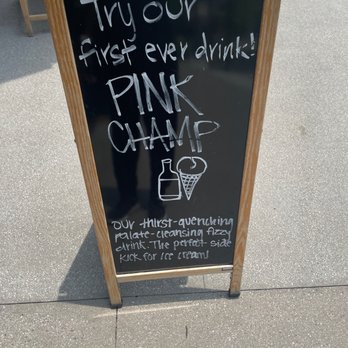 Try our
first ever drink!
PINK
CHAMP
our thirst-quenching
palate-cleansing fizzy
drink. The perfect side
kick for ice cream!